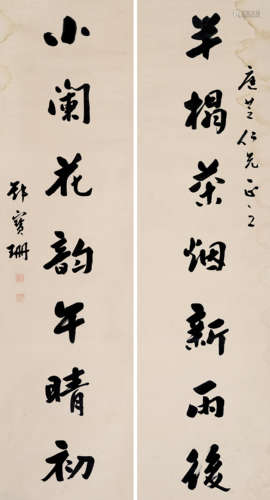 半榻茶烟新雨後
小阑花韵午晴初
仁兄正之
寶珊